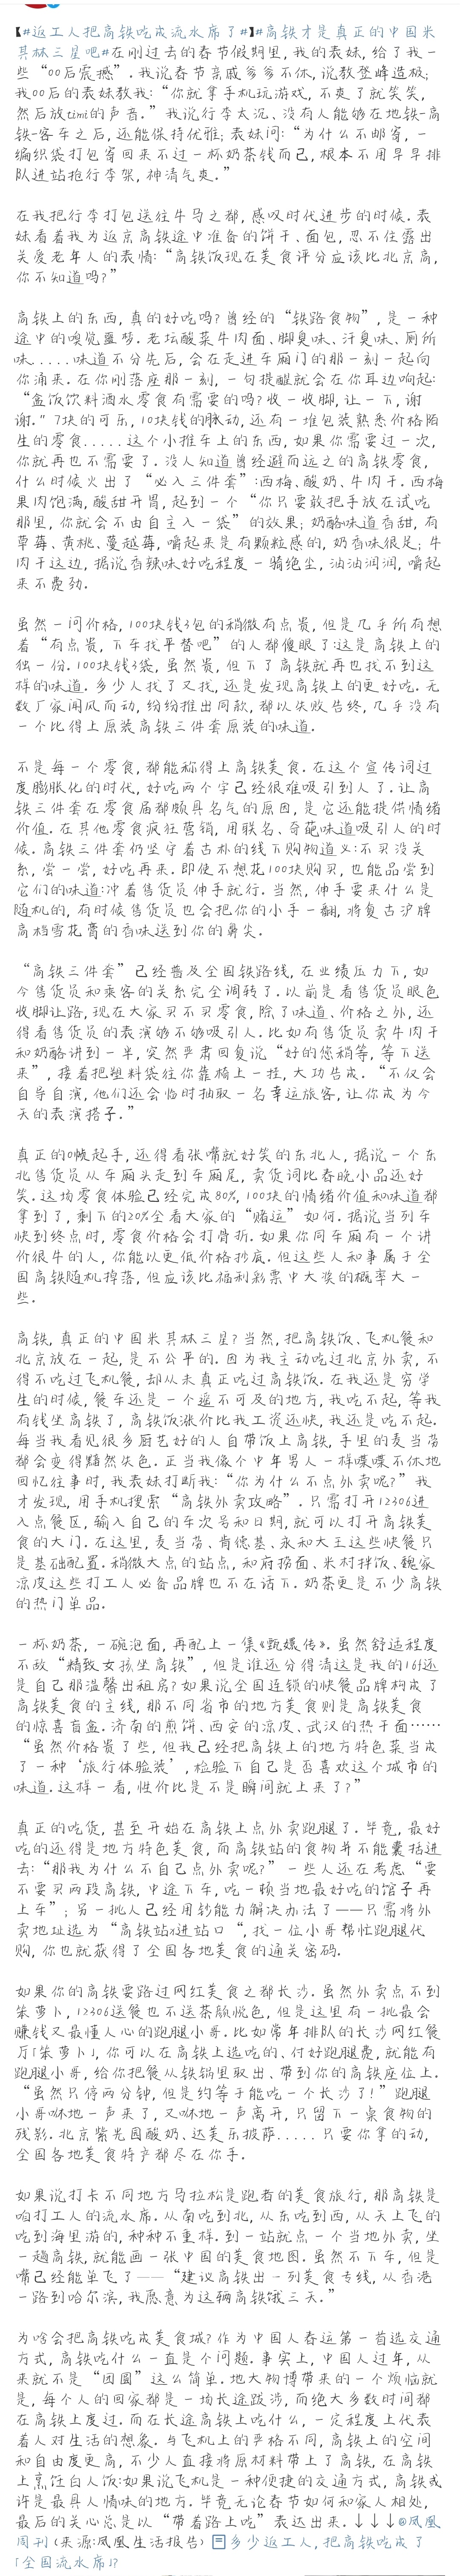 【#返工人把高铁吃成流水席了#】#高铁才是真正的中国米
其林三星吧#在刚过去的春节假期里，我的表妹，给了我一
些“00后震撼”。我说春节亲戚多多不休，说教登峰造极；
我00后的表妹教我：“你就拿手机玩游戏，不爽了就笑笑，
然后放timi的声音。”我说行李太沉、没有人能够在地铁-高
铁-客车之后，还能保持优雅；表妹问：“为什么不邮寄，一
编织袋打包寄回来不过一杯奶茶钱而已，根本不用早早排
队进站抢行李架，神清气爽。”
在我把行李打包送往牛马之都，感叹时代进步的时候。表
妹看着我为返京高铁途中准备的饼干、面包，忍不住露出
关爱老年人的表情：“高铁饭现在美食评分应该比北京高，
你不知道吗？”
高铁上的东西，真的好吃吗？曾经的“铁路食物”，是一种
途中的嗅觉噩梦。老坛酸菜牛肉面、脚臭味、汗臭味、厕所
味.....味道不分先后，会在走进车厢门的那一刻一起向
你涌来。在你刚落座那一刻，一句提醒就会在你耳边响起：
“盒饭饮料酒水零食有需要的吗？收一收脚，让一下，谢
谢。”7块的可乐，10块钱的脉动，还有一堆包装熟悉价格陌
生的零食.....这个小推车上的东西，如果你需要过一次，
你就再也不需要了。没人知道曾经避而远之的高铁零食，
什么时候火出了“必入三件套”：西梅、酸奶、牛肉干。西梅
果肉饱满，酸甜开胃，起到一个“你只要敢把手放在试吃
那里，你就会不由自主入一袋”的效果；奶酪味道香甜，有
草莓、黄桃、蔓越莓，嚼起来是有颗粒感的，奶香味很足；牛
肉干这边，据说香辣味好吃程度一骑绝尘，油油润润，嚼起
来不费劲。
虽然一问价格，100块钱3包的稍微有点贵，但是几乎所有想
着“有点贵，下车找平替吧”的人都傻眼了：这是高铁上的
独一份。100块钱3袋，虽然贵，但下了高铁就再也找不到这
样的味道。多少人找了又找，还是发现高铁上的更好吃。无
数厂家闻风而动，纷纷推出同款，都以失败告终，几乎没有
一个比得上原装高铁三件套原装的味道。
不是每一个零食，都能称得上高铁美食。在这个宣传词过
度膨胀化的时代，好吃两个字已经很难吸引到人了。让高
铁三件套在零食届都颇具名气的原因，是它还能提供情绪
价值。在其他零食疯狂营销，用联名、奇葩味道吸引人的时
候。高铁三件套仍坚守着古朴的线下购物道义：不买没关
系，尝一尝，好吃再来。即使不想花100块购买，也能品尝到
它们的味道：冲着售货员伸手就行。当然，伸手要来什么是
随机的，有时候售货员也会把你的小手一翻，将复古沪牌
高档雪花膏的香味送到你的鼻尖。
“高铁三件套”已经普及全国铁路线，在业绩压力下，如
今售货员和乘客的关系完全调转了。以前是看售货员眼色
收脚让路，现在大家买不买零食，除了味道、价格之外，还
得看售货员的表演够不够吸引人。比如有售货员卖牛肉干
和奶酪讲到一半，突然严肃回复说“好的您稍等，等下送
来”，接着把塑料袋往你靠椅上一挂，大功告成。“不仅会
自导自演，他们还会临时抽取一名幸运旅客，让你成为今
天的表演搭子。”
真正的0帧起手，还得看张嘴就好笑的东北人，据说一个东
北售货员从车厢头走到车厢尾，卖货词比春晚小品还好
笑。这场零食体验已经完成80%，100块的情绪价值和味道都
拿到了，剩下的20%全看大家的“赌运”如何。据说当列车
快到终点时，零食价格会打骨折。如果你同车厢有一个讲
价很牛的人，你能以更低价格抄底。但这些人和事属于全
国高铁随机掉落，但应该比福利彩票中大奖的概率大一
些。
高铁，真正的中国米其林三星？当然，把高铁饭、飞机餐和
北京放在一起，是不公平的。因为我主动吃过北京外卖，不
得不吃过飞机餐，却从未真正吃过高铁饭。在我还是穷学
生的时候，餐车还是一个遥不可及的地方，我吃不起，等我
有钱坐高铁了，高铁饭涨价比我工资还快，我还是吃不起。
每当我看见很多厨艺好的人自带饭上高铁，手里的麦当劳
都会变得黯然失色。正当我像个中年男人一样喋喋不休地
回忆往事时，我表妹打断我：“你为什么不点外卖呢？”我
才发现，用手机搜索“高铁外卖攻略”。只需打开12306进
入点餐区，输入自己的车次号和日期，就可以打开高铁美
食的大门。在这里，麦当劳、肯德基、永和大王这些快餐只
是基础配置。稍微大点的站点，和府捞面、米村拌饭、魏家
凉皮这些打工人必备品牌也不在话下。奶茶更是不少高铁
的热门单品。
一杯奶茶，一碗泡面，再配上一集《甄嬛传》。虽然舒适程度
不敌“精致女孩坐高铁”，但是谁还分得清这是我的16f还
是自己那温馨出租房？如果说全国连锁的快餐品牌构成了
高铁美食的主线，那不同省市的地方美食则是高铁美食
的惊喜盲盒。济南的煎饼、西安的凉皮、武汉的热干面……
“虽然价格贵了些，但我已经把高铁上的地方特色菜当成
了一种‘旅行体验装’，检验下自己是否喜欢这个城市的
味道。这样一看，性价比是不是瞬间就上来了？”
真正的吃货，甚至开始在高铁上点外卖跑腿了。毕竟，最好
吃的还得是地方特色美食，而高铁站的食物并不能囊括进
去：“那我为什么不自己点外卖呢？”一些人还在考虑“要
不要买两段高铁，中途下车，吃一顿当地最好吃的馆子再
上车”；另一批人已经用钞能力解决办法了——只需将外
卖地址选为“高铁站x进站口“，找一位小哥帮忙跑腿代
购，你也就获得了全国各地美食的通关密码。
如果你的高铁要路过网红美食之都长沙。虽然外卖点不到
笨萝卜，12306送餐也不送茶颜悦色，但是这里有一批最会
赚钱又最懂人心的跑腿小哥。比如常年排队的长沙网红餐
厅「笨萝卜」，你可以在高铁上选吃的、付好跑腿费，就能有
跑腿小哥，给你把餐从铁锅里取出、带到你的高铁座位上。
“虽然只停两分钟，但是约等于能吃一个长沙了！”跑腿
小哥咻地一声来了，又咻地一声离开，只留下一桌食物的
残影。北京紫光园酸奶、达美乐披萨.....只要你拿的动，
全国各地美食特产都尽在你手。
如果说打卡不同地方马拉松是跑者的美食旅行，那高铁是
咱打工人的流水席。从南吃到北，从东吃到西，从天上飞的
吃到海里游的，种种不重样。到一站就点一个当地外卖，坐
一趟高铁，就能画一张中国的美食地图。虽然不下车，但是
嘴已经能单飞了——“建议高铁出一列美食专线，从香港
一路到哈尔滨，我愿意为这辆高铁饿三天。”
为啥会把高铁吃成美食城？作为中国人春运第一首选交通
方式，高铁吃什么一直是个问题。事实上，中国人过年，从
来就不是“团圆”这么简单。地大物博带来的一个烦恼就
是，每个人的回家都是一场长途跋涉，而绝大多数时间都
在高铁上度过。而在长途高铁上吃什么，一定程度上代表
着人对生活的想象。与飞机上的严格不同，高铁上的空间
和自由度更高，不少人直接将原材料带上了高铁，在高铁
上烹饪白人饭：如果说飞机是一种便捷的交通方式，高铁或
许是最具人情味的地方。毕竟无论春节如何和家人相处，
最后的关心总是以“带着路上吃”表达出来。↓↓↓@凤凰
周刊（来源：凤凰生活报告）多少返工人，把高铁吃成了
「全国流水席」？